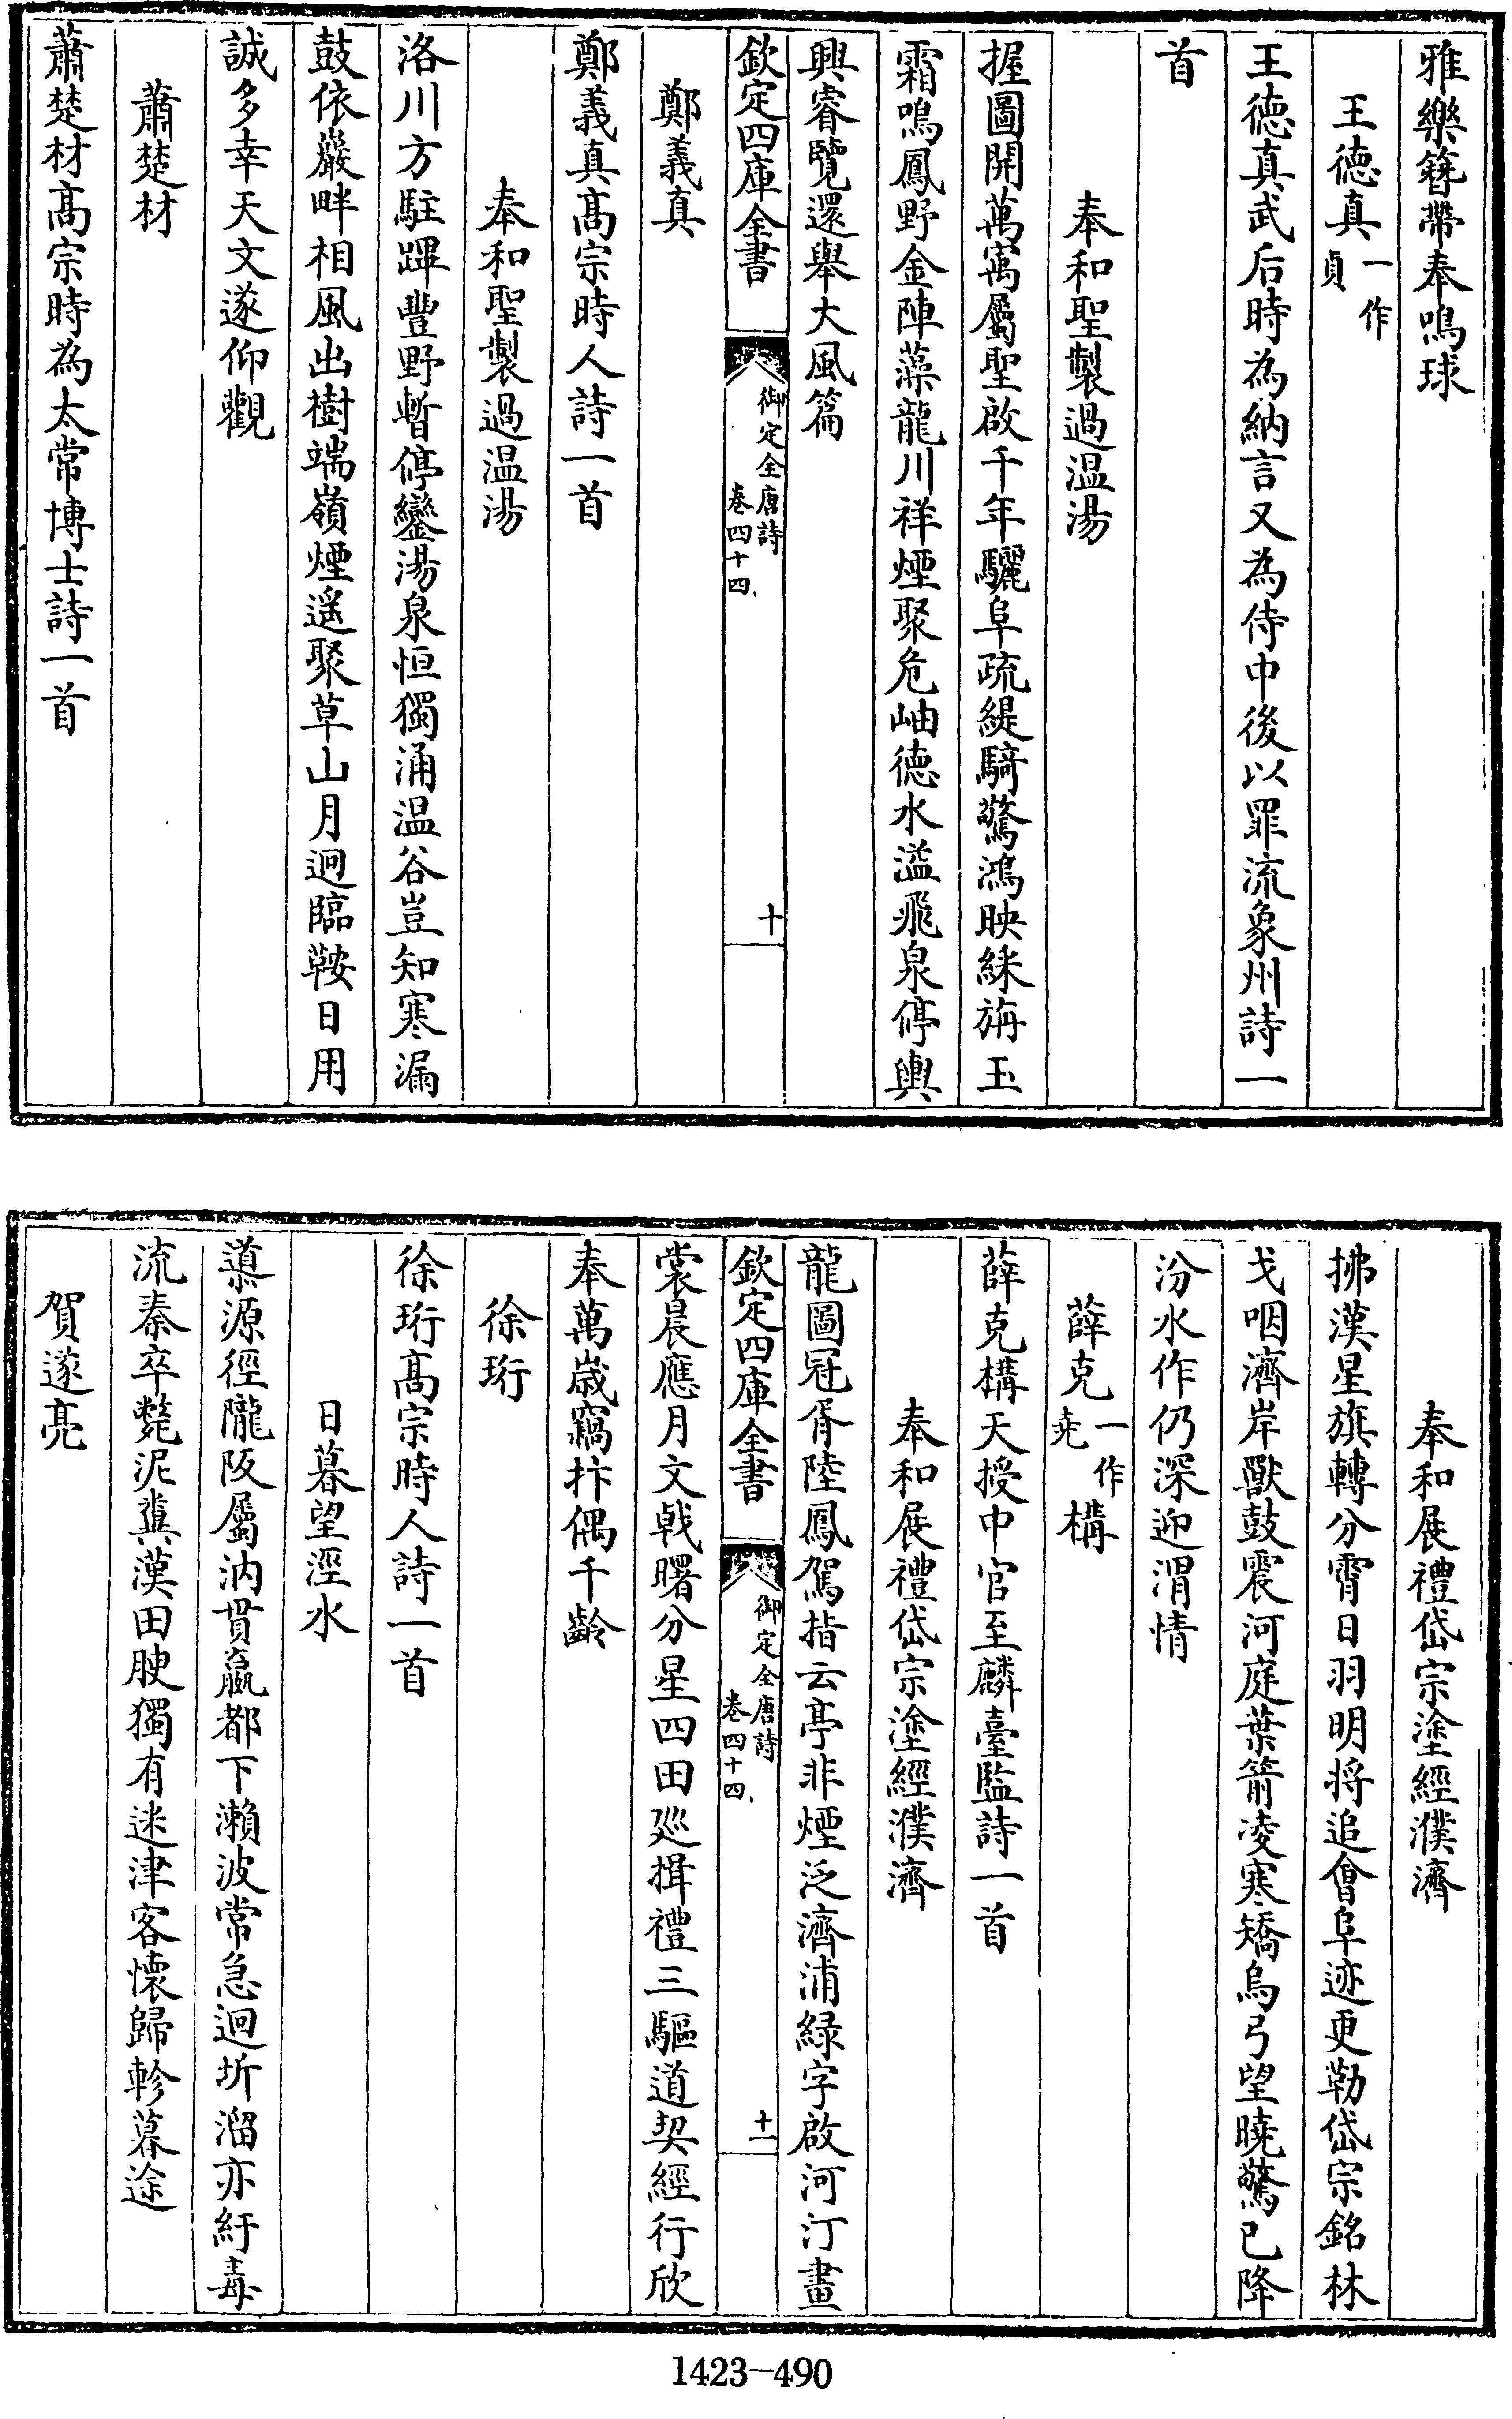 雅樂簪帶奉鳴球
王德真一作貞
王德真武后時為納言又為侍中後以罪流象州詩一
首
奉和聖製過温湯
握圖開萬㝢屬聖啟千年驪阜疏緹騎驚鴻映綵斾玉
霜鳴鳳野金陣藻龍川祥煙聚危岫德水溢飛泉停輿
興睿覽還舉大風篇
欽定四庫全書
御定全唐詩
卷四十四
十
鄭義真
鄭義真髙宗時人詩一首
奉和聖製過温湯
洛川方駐蹕豐野暫停鑾湯泉恒獨涌温谷豈知寒漏
鼓依巖畔相風出樹端嶺煙遥聚草山月迥臨鞍日用
誠多幸天文遂仰觀
蕭楚材
蕭楚材髙宗時為太常博士詩一首
奉和展禮岱宗塗經濮濟
拂漢星旗轉分霄日羽明将追會阜迹更勒岱宗銘林
戈咽濟岸獸鼓震河庭葉箭凌寒矯烏弓望曉驚已降
汾水作仍深迎渭情
薛克一作尭構
薛克構天授中官至麟臺監詩一首
奉和展禮岱宗塗經濮濟
龍圖冠胥陸鳳駕指云亭非煙泛濟浦緑字啟河汀畫
裳晨應月文㦸曙分星四田廵揖禮三驅道契經行欣
奉萬嵗竊抃偶千齡
欽定四庫全書
御定全唐詩
卷四十四
十一
徐珩
徐珩髙宗時人詩一首
日暮望涇水
導源徑隴阪屬汭貫嬴都下瀨波常急迴圻溜亦紆毒
流秦卒斃泥糞漢田腴獨有迷津客懐歸軫暮途
賀遂亮
1423-490